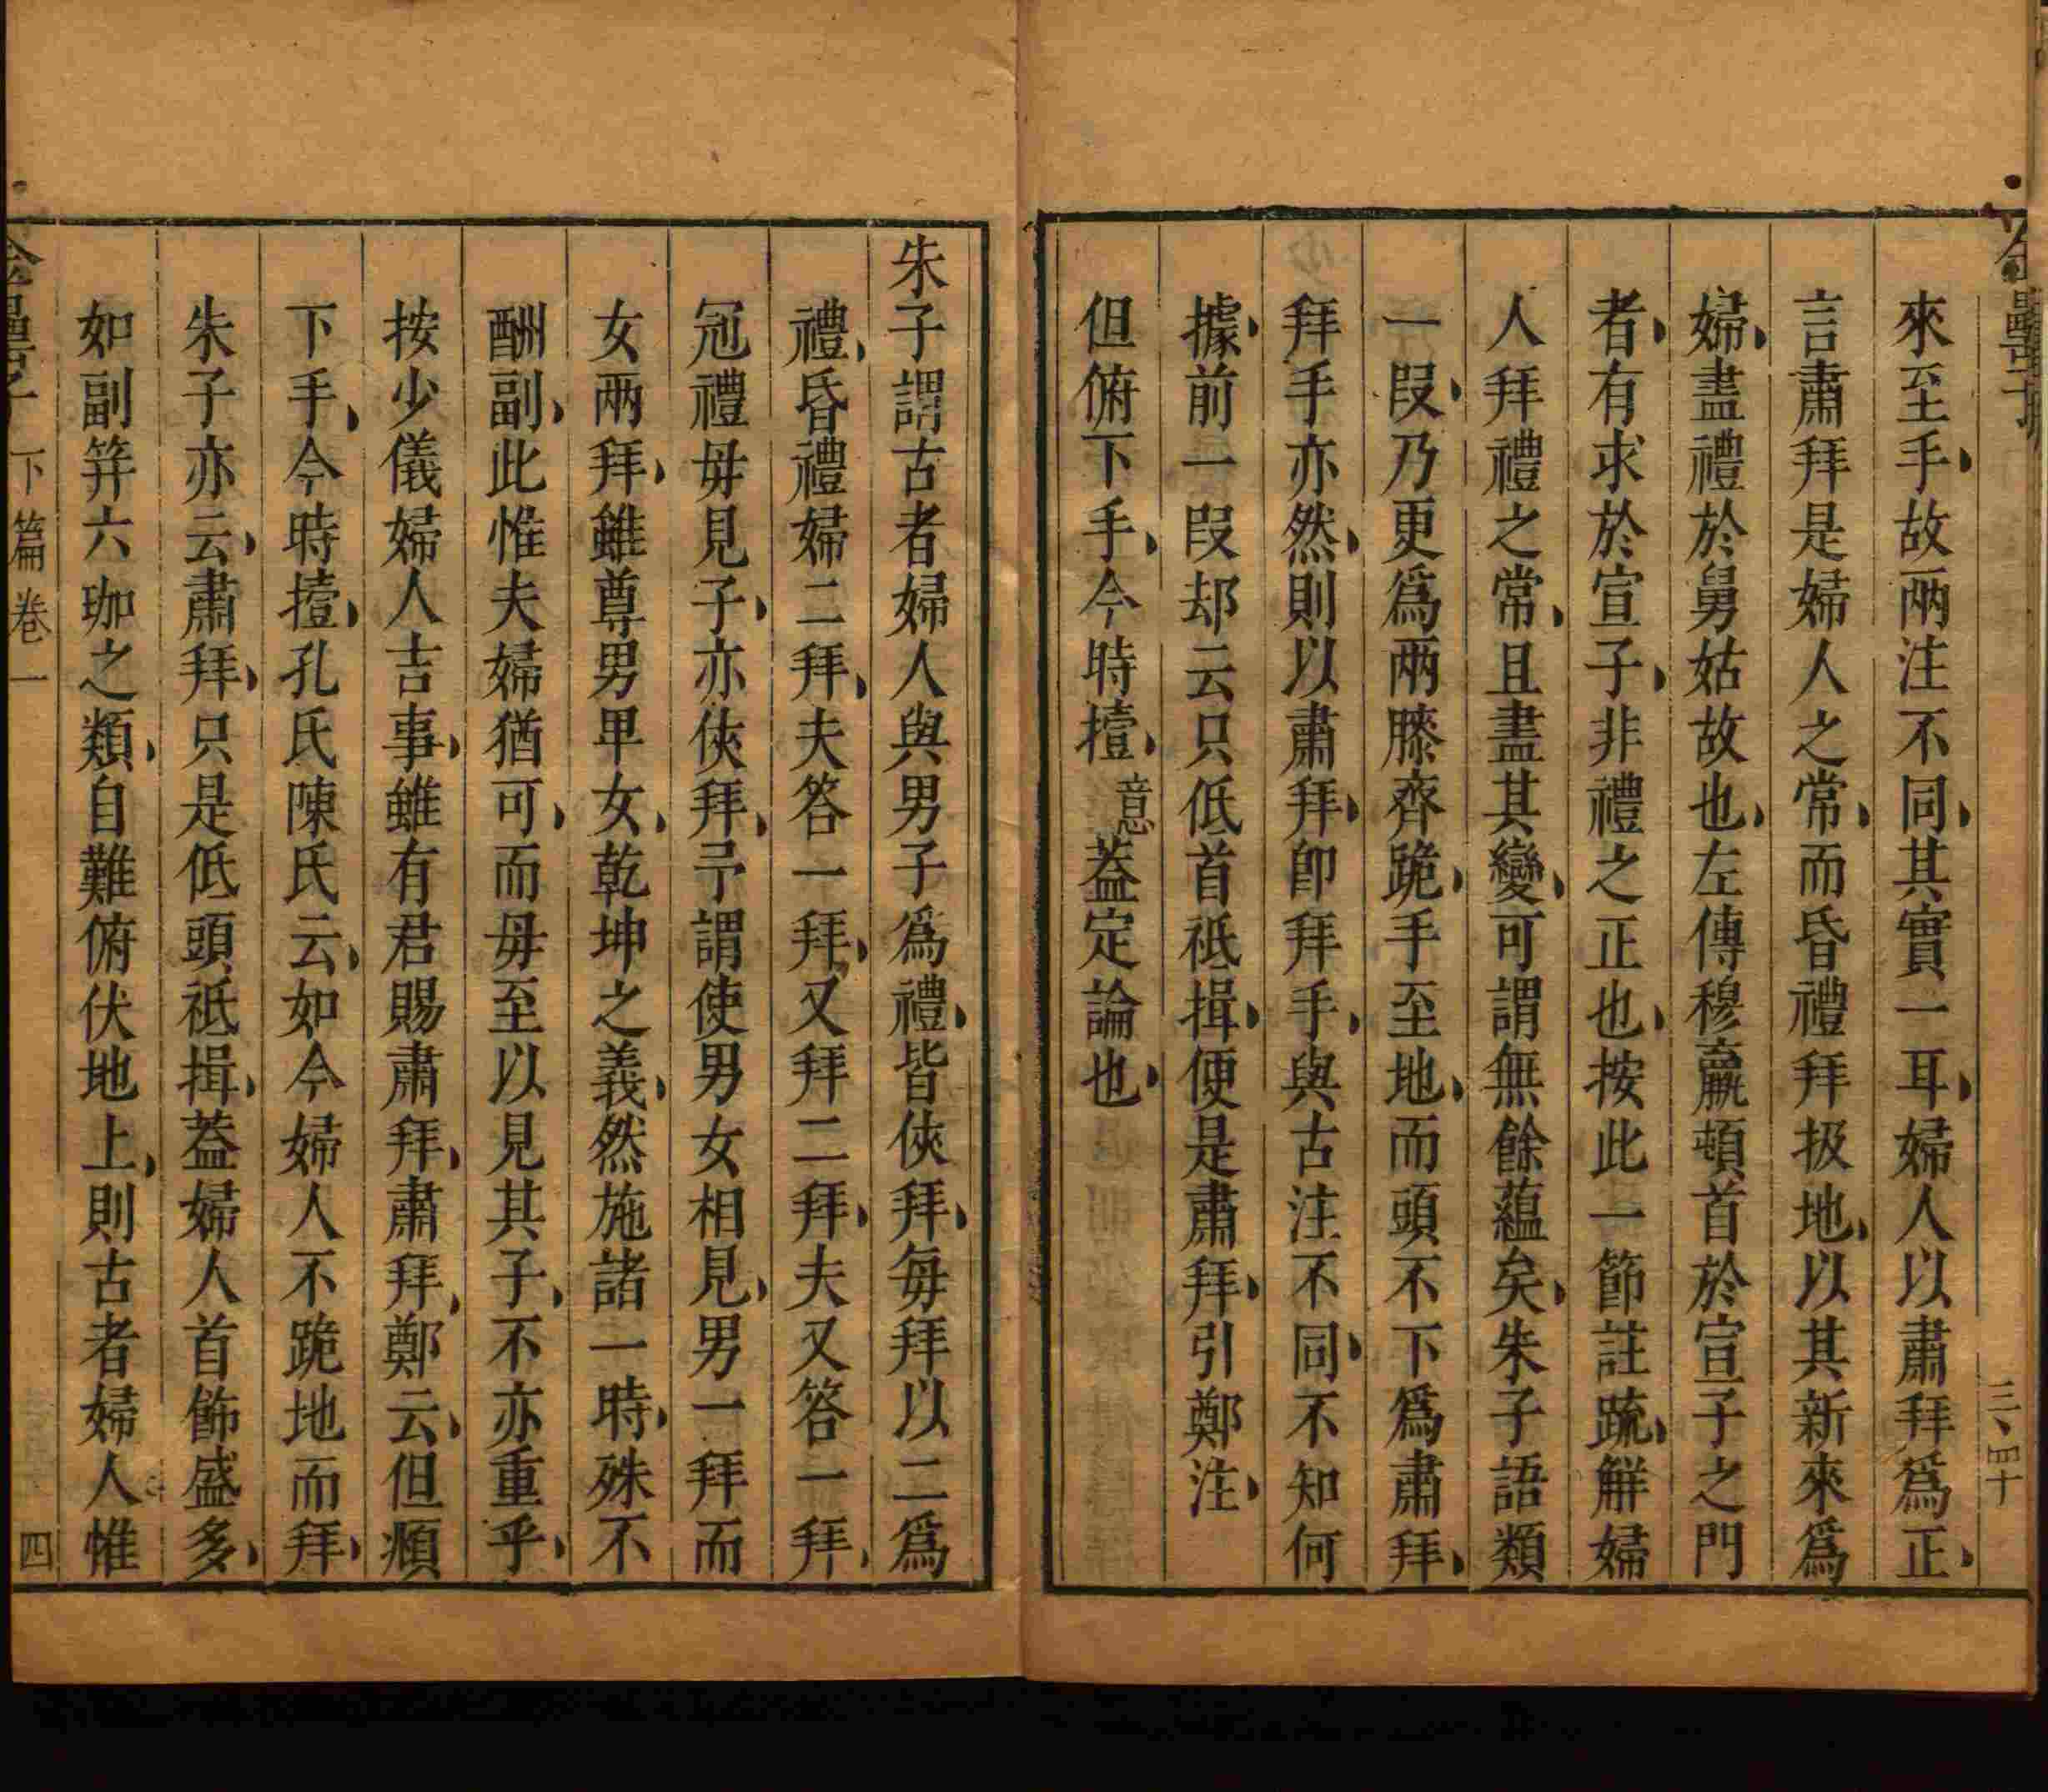 來至手故兩注不同其實一耳婦人以肅拜爲正
言肅拜是婦人之常而昏禮拜扱地以其新來爲
婦盡禮於舅姑故也左傳穆嬴頓首於宣子之門
者有求於宣子非禮之正也按此一節註疏解婦
人拜禮之常且盡其變可謂無餘蘊矣朱子語類
一段乃更爲兩膝齊跪手至地而頭不下爲肅拜
拜手亦然則以肅拜卽拜手與古注不同不知何
據前一段却云只低首祗揖便是肅拜引鄭注
但俯下手今時撎意葢定論也
朱子謂古者婦人與男子爲禮皆俠拜每拜以二爲
禮昏禮婦二拜夫答一拜又拜二拜夫又答一拜
冠禮毋見子亦俠拜予謂使男女相見男一拜而
女兩拜雖尊男卑女乾坤之義然施諸一時殊不
酬副此惟夫婦猶可而毋至以見其子不亦重乎
按少儀婦人吉事雖有君賜肅拜肅拜鄭云但頫
下手今時撎孔氏陳氏云如今婦人不跪地而拜
朱子亦云肅拜只是低頭祗揖葢婦人首飾盛多
如副笄六珈之類自難俯伏地上則古者婦人惟
下篇卷一
四